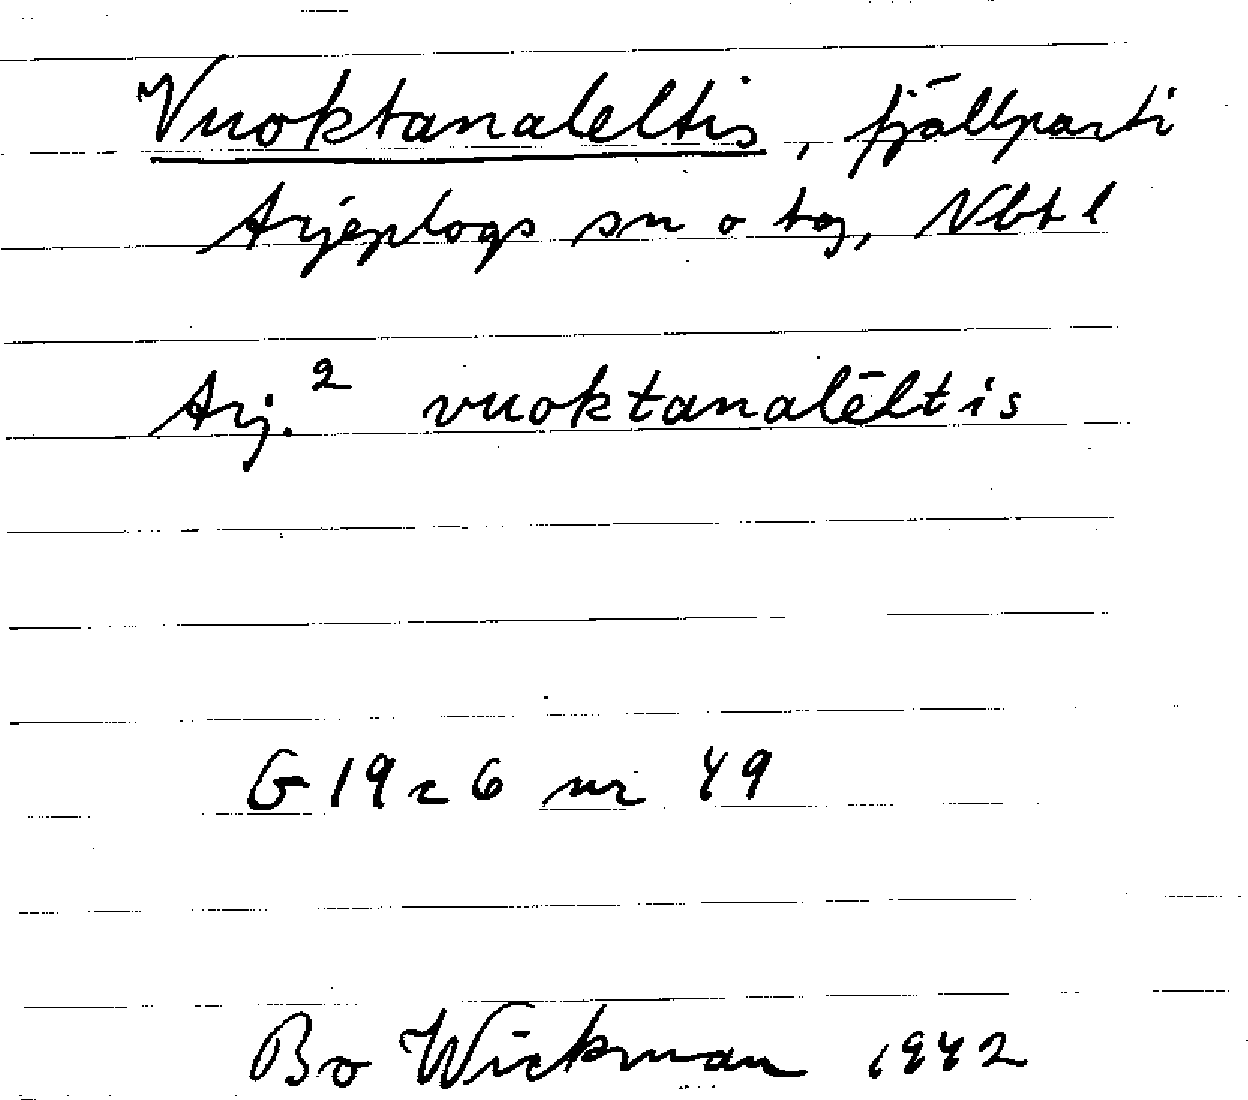 Vuoktanaleltis, fjällparti
Arjeplogs sn o tg, Nbt l
Arj.² vuoktanalēltis
G 19 c 6 nr 49
Bo Wickman 1942